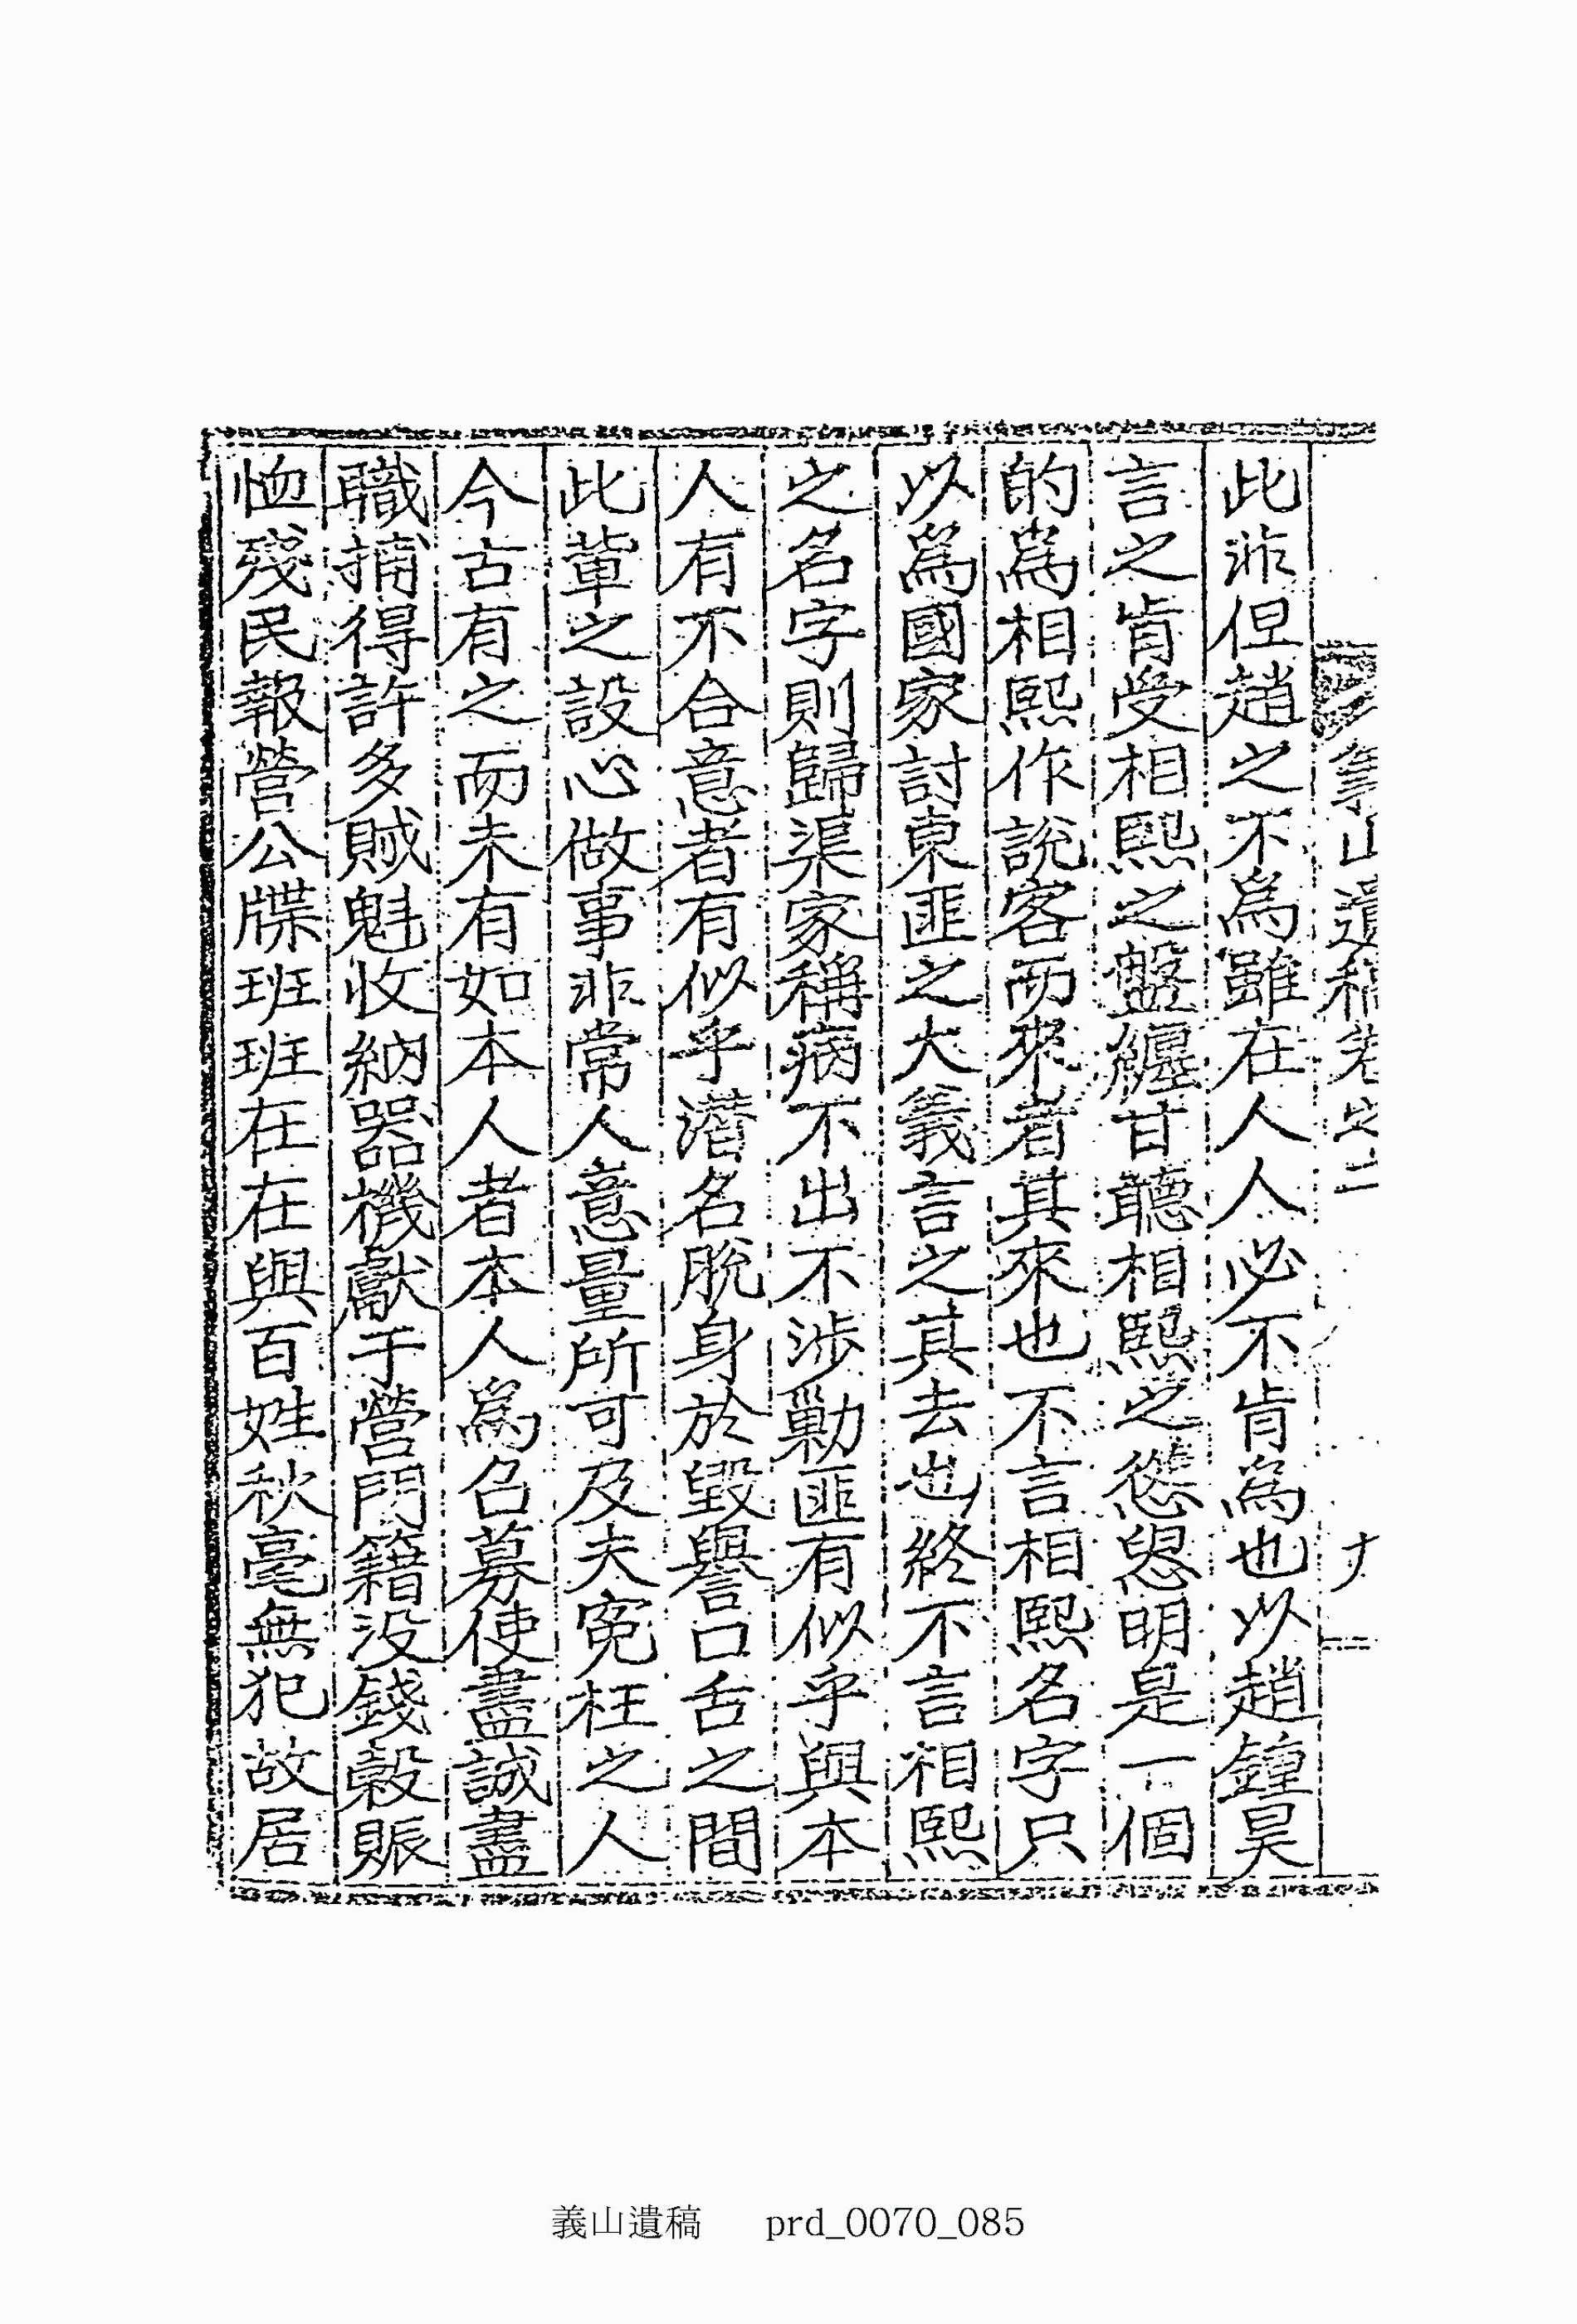 義山遺稿卷之二
此非但趙之不爲雖在人人必不肯爲也以趙鐘昊
言之肯受相熙之盤纏甘聽相熙之慫恿明是一個
的爲相熙作說客而來者其來也不言相熙名字只
以爲國家討東匪之大義言之其去也終不言相熙
之名字則歸渠家稱病不出不涉勦匪有似乎與本
人有不合意者有似乎潛名脫身於毀譽口舌之間
此輩之設心做事非常人意量所可及夫寃枉之人
今古有之而未有如本人者本人爲召募使盡誠盡
職捕得許多賊魁收納器機獻于營門籍没錢穀賑
恤殘民報營公牒班班在在與百姓秋毫無犯故居
義山遺稿 prd_0070_085